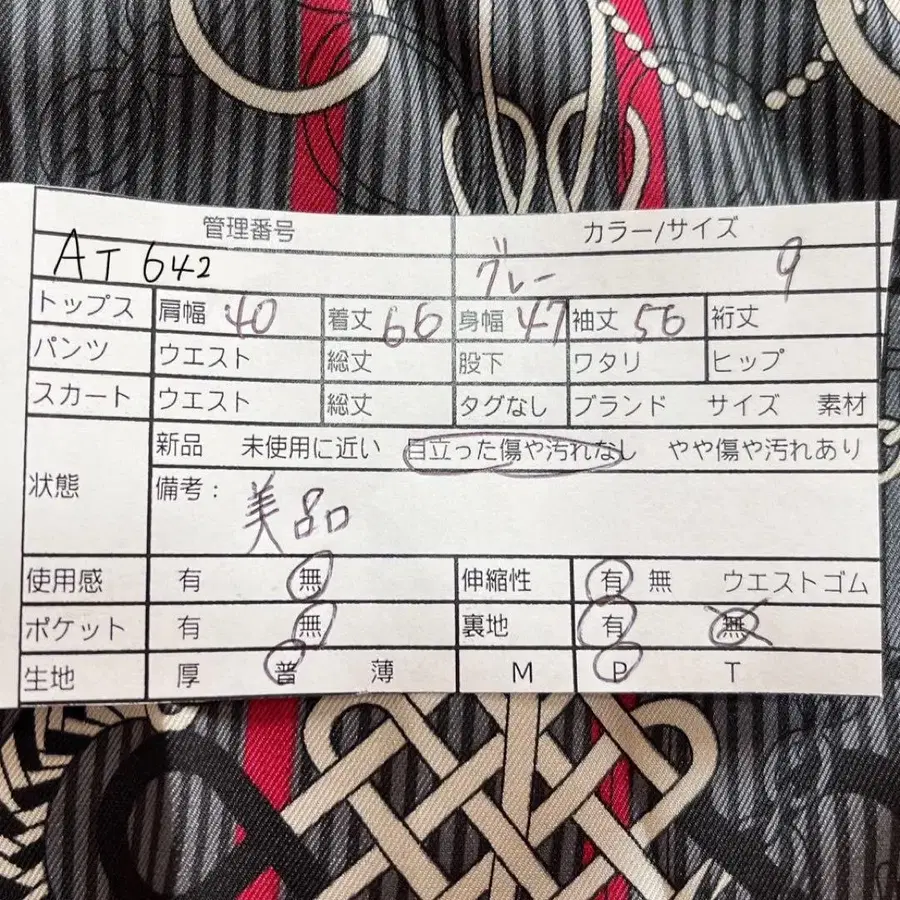 管理番号 カラー/サイズ
AT 642 グレー 9
トップス 肩幅 40 着丈 66 身幅 47 袖丈 56 裄丈
パンツ ウエスト 総丈 股下 ワタリ ヒップ
スカート ウエスト 総丈 タグなし ブランド サイズ 素材
状態 新品 未使用に近い 目立った傷や汚れなし やや傷や汚れあり
備考: 美品
使用感 有 無 伸縮性 有 無 ウエストゴム
ポケット 有 無 裏地 有 無
生地 厚 普 薄 M P T